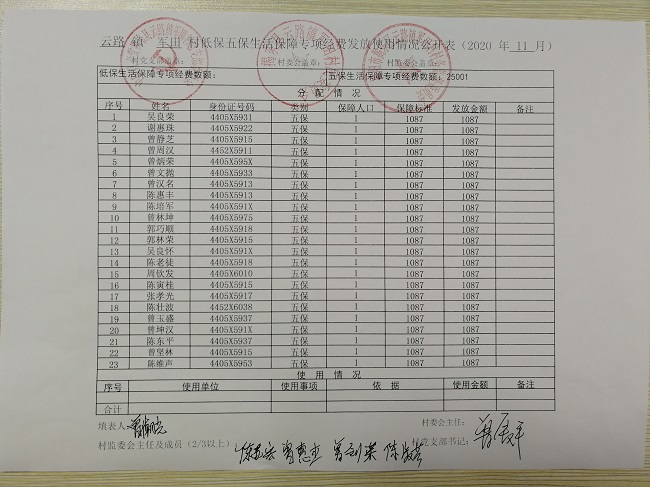 云路 镇 军田 村低保五保生活保障专项经费发放使用情况公开表（2020 年 11 月）
村党支部盖章： 村委会盖章： 村监委会盖章：
低保生活保障专项经费数额： 五保生活保障专项经费数额：25001
分 配 情 况
序号 姓名 身份证号码 类别 保障人口 保障标准 发放金额 备注
1 吴良荣 4405X5931 五保 1 1087 1087
2 谢惠珠 4405X5922 五保 1 1087 1087
3 曾静芝 4405X5915 五保 1 1087 1087
4 曾周汉 4452X5911 五保 1 1087 1087
5 曾炳荣 4405X595X 五保 1 1087 1087
6 曾文抛 4405X5933 五保 1 1087 1087
7 曾汉名 4405X5913 五保 1 1087 1087
8 陈惠丰 4405X5913 五保 1 1087 1087
9 陈培军 4405X591X 五保 1 1087 1087
10 曾林坤 4405X5975 五保 1 1087 1087
11 郭巧顺 4405X5918 五保 1 1087 1087
12 郭林荣 4405X5915 五保 1 1087 1087
13 吴良怀 4405X591X 五保 1 1087 1087
14 陈老徒 4405X5918 五保 1 1087 1087
15 周钦发 4405X6010 五保 1 1087 1087
16 陈寅桂 4405X5915 五保 1 1087 1087
17 张孝光 4405X5917 五保 1 1087 1087
18 陈壮波 4452X6038 五保 1 1087 1087
19 曾玉盛 4405X5937 五保 1 1087 1087
20 曾坤汉 4405X591X 五保 1 1087 1087
21 陈东平 4405X5937 五保 1 1087 1087
22 曾坚林 4405X5915 五保 1 1087 1087
23 陈维声 4405X5953 五保 1 1087 1087
使 用 情 况
序号 使用单位 使用事项 依 据 使用金额 备注
合计
填表人： 村委会主任：
村监委会主任及成员（2/3以上）： 村党支部书记：